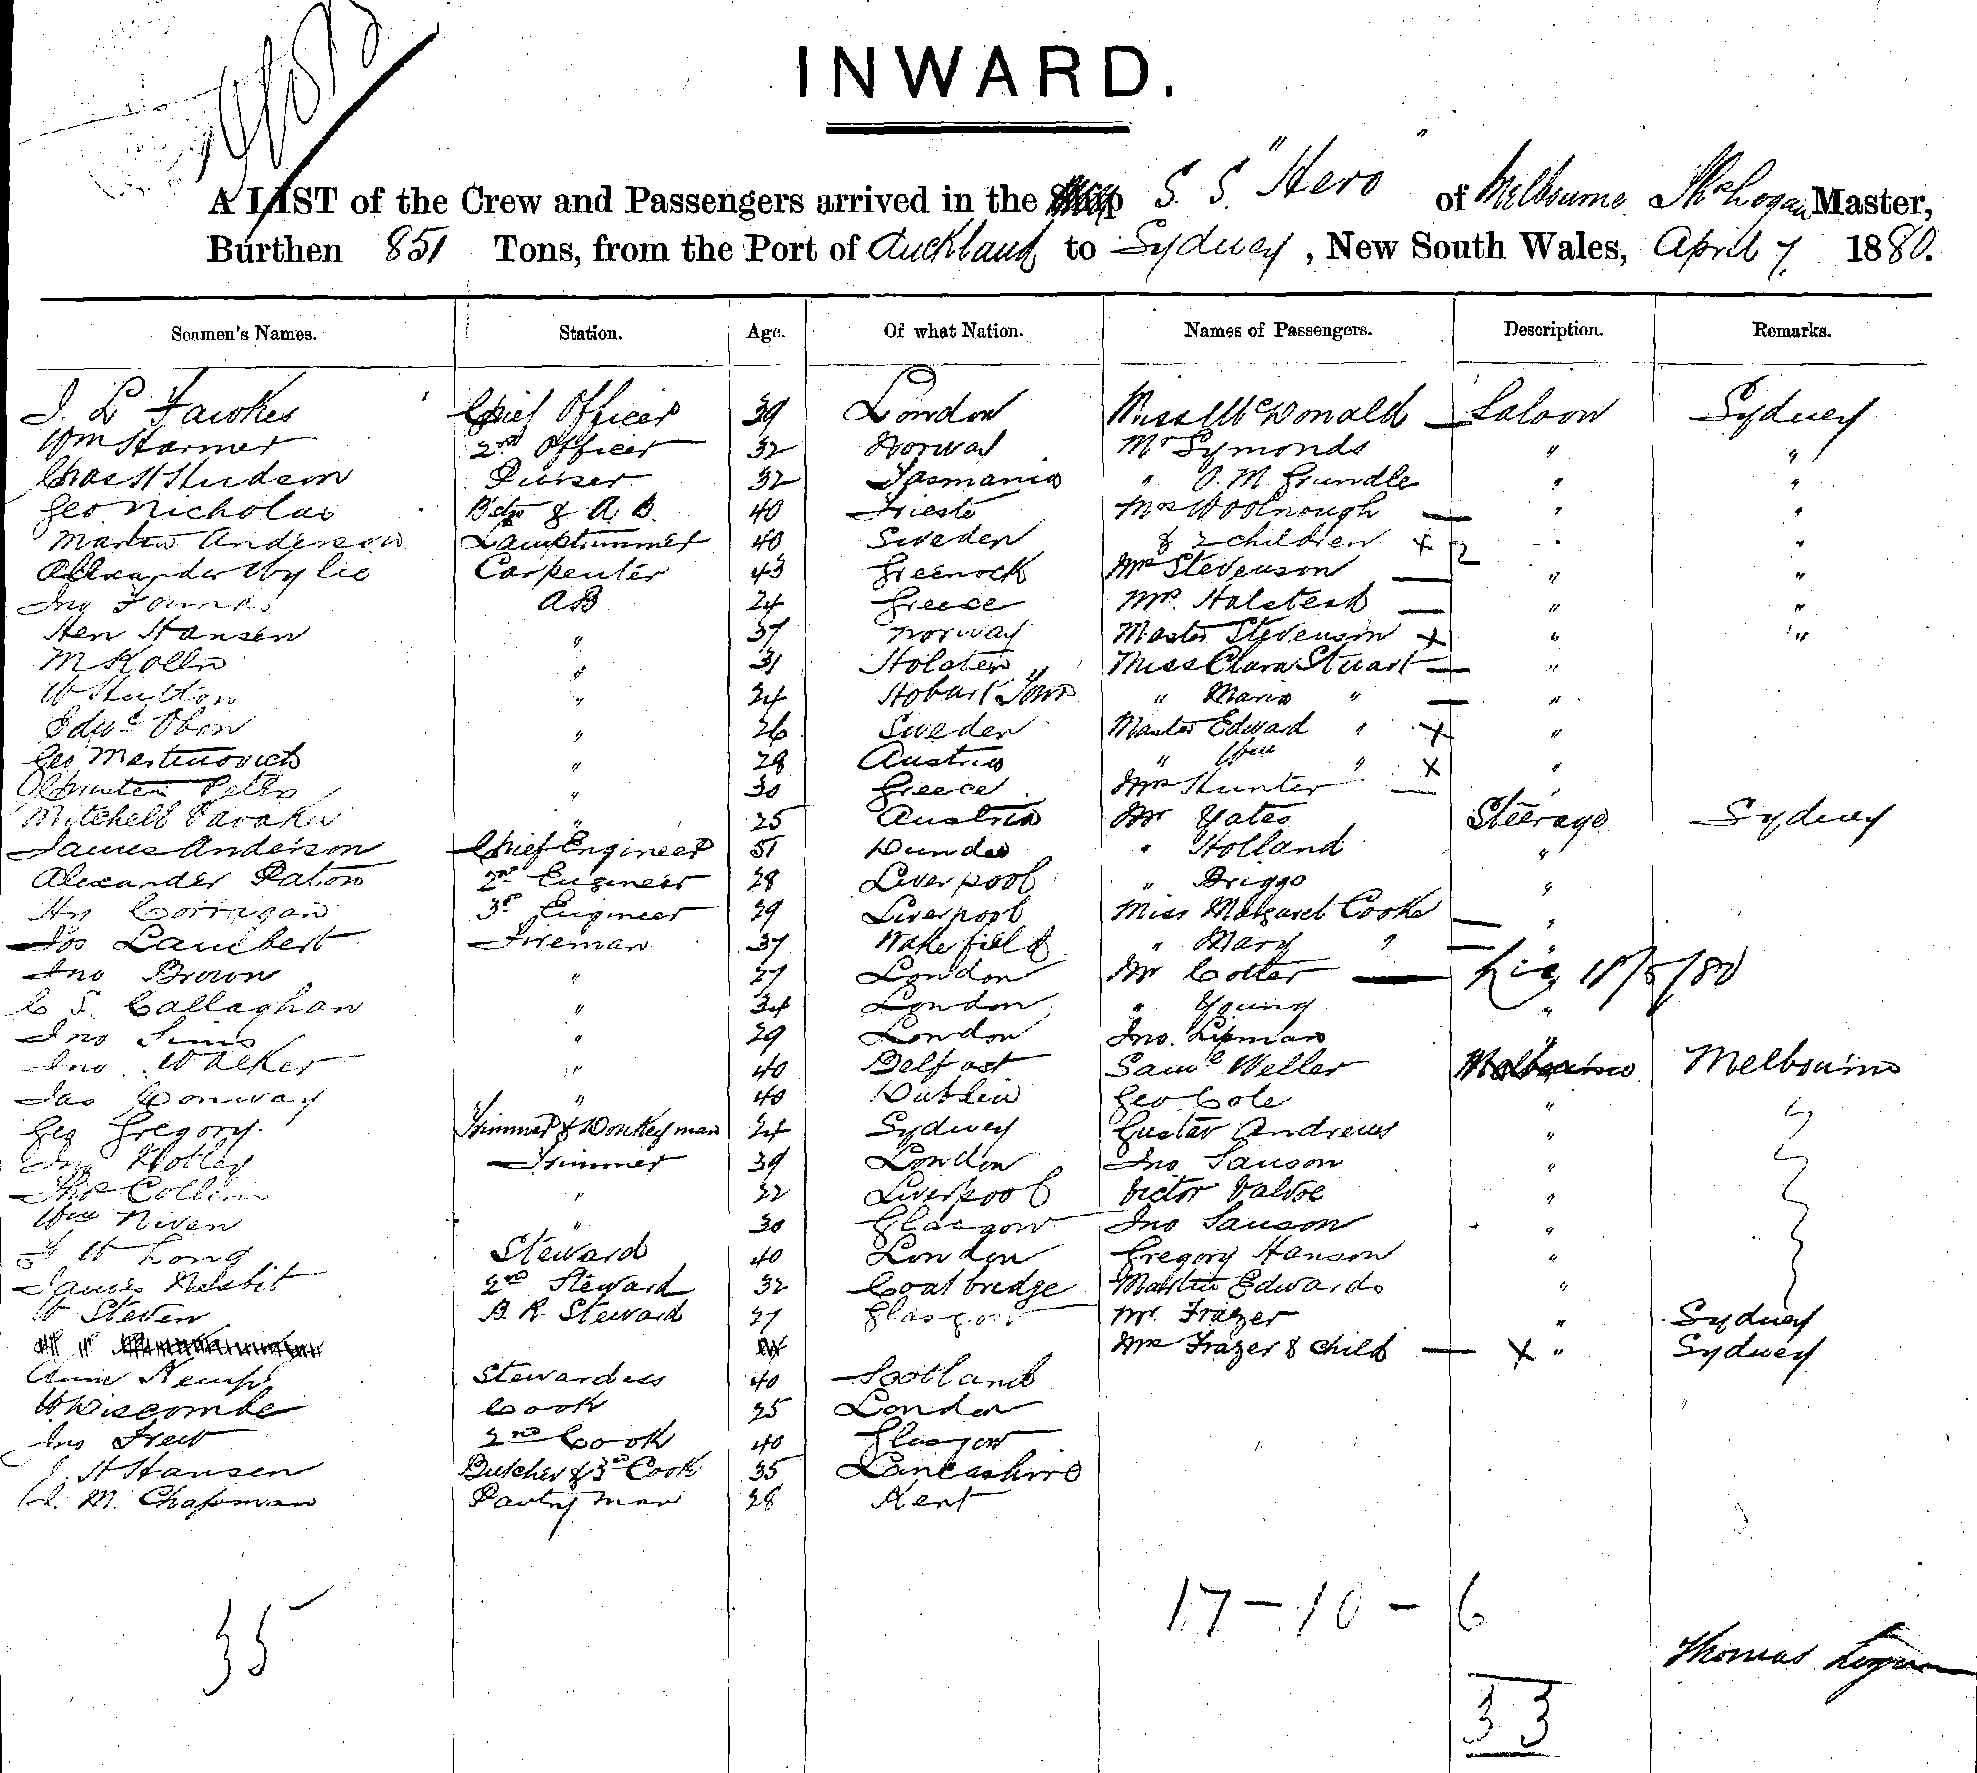 INWARD.
A LIST of the Crew and Passengers arrived in the Ship S. S. "Hero" of Melbourne Thos Logan Master,
Burthen 851 Tons, from the Port of Auckland to Sydney, New South Wales, April 7. 1880.
Seamen's Names. Station. Age. Of what Nation. Names of Passengers. Description. Remarks.
J. L Fawkes Chief Officer 39 London Miss McDonald Saloon Sydney
Wm Harmer 2nd Officer 32 Norway Mr Symonds " "
Chas H Hudson Purser 32 Tasmania " O. M. Grundle " "
Geo Nicholas & A. B. 40 Trieste Mrs Woolnough " "
Martin Anderson Lamptrimmer 40 Sweden & 2 children x 2 " "
Alexander Wylie Carpenter 43 Greenock Mrs Stevenson " "
Jno AB 24 Greece Mrs. Halstead " "
Hen Hansen " 37 Norway Master Stevenson x " "
M Kolln " 31 Holstein Miss Clara Stuart "
W " 24 Hobart Town " Maria " "
Edwd " 26 Sweden Master Edward " x "
Geo Martinovich " 28 Austria " Wm " x "
" 30 Greece Mrs Hunter "
Mitchell " 25 Austria Mr Yates Steerage Sydney
James Anderson Chief Engineer 51 Dundee " Holland "
Alexander Paton 2nd Engineer 28 Liverpool " Briggs "
Hy Corrigan 3rd Engineer 29 Liverpool Miss Margaret Cooke "
Jos Lambert Fireman 37 Wakefield " Mary " "
Jno Brown " 27 London Mr Cotter
C S. Callaghan " 34 London " Young "
Jno Sims " 29 London Jno. Lipman "
Jno Walker " 40 Belfast Saml Weller Melbourne Melbourne
Jas Conway " 40 Dublin Geo Cole "
Geo Gregory. Trimmer & Donkeyman 24 Sydney Gustav Andrews "
Jno Trimmer 39 London Jno Sanson "
Thos Collins " 32 Liverpool Victor Valvoe "
Wm Niven " 30 Glasgow Jno Sanson "
W Long Steward 40 London Gregory Hanson "
James Nesbit 2nd Steward 32 Coatbridge Edwards "
W Steven B. R. Steward 27 Glasgow Mr Frazer " Sydney
Mrs Frazer & child x " Sydney
Annie Kemp Stewardess 40 Scotland
W Discombe Cook 25 London
Jno Frew 2nd Cook 40 Glasgow
J. H Hansen Butcher & 3rd Cook 35 Lancashire
M. Chapman Pantryman 28 Kent
35
17 - 10 - 6
Thomas Logan
33